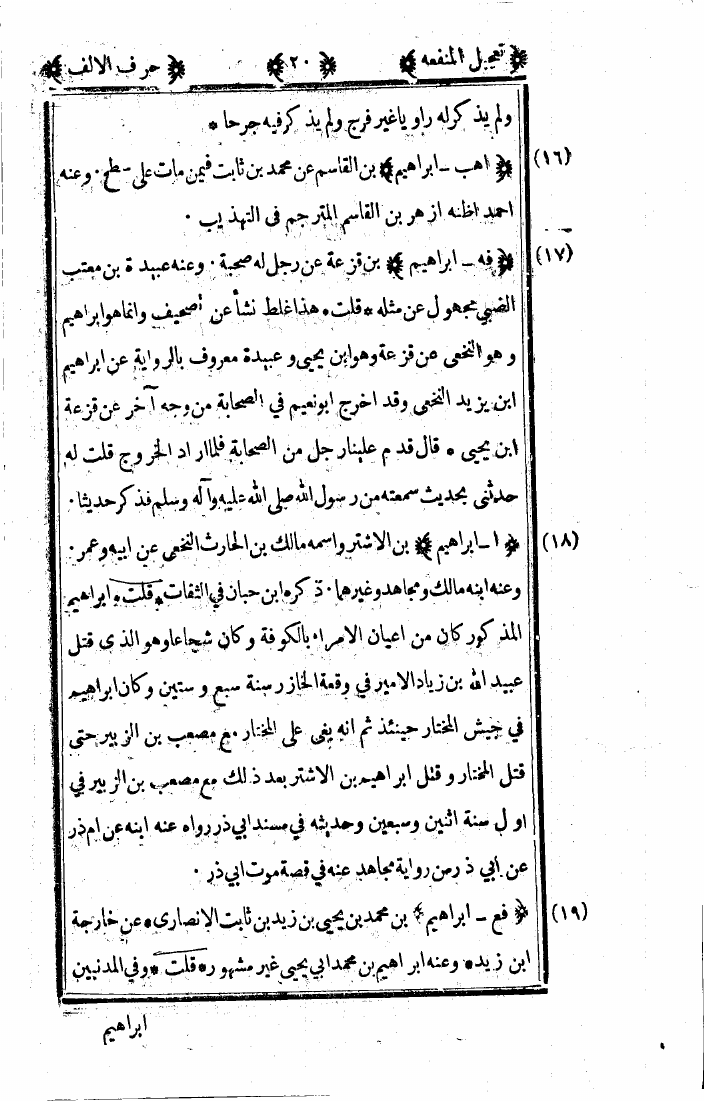 ﴿ تعجيل المنفعه ﴾ ﴿ ٢٠ ﴾ ﴿ حرف الالف ﴾
ولم يذكر له راويا غير فرج ولم يذكر فيه جرحا *
(١٦) ﴿ اهب ـ ابراهيم ﴾ بن القاسم عن محمد بن ثابت فيمن مات على سطح ٠ وعنه
احمد اظنه ازهر بن القاسم المترجم فى التهذيب ٠
(١٧) ﴿ فه ـ ابراهيم ﴾ بن قزعة عن رجل له صحبة ٠ وعنه عبيدة بن معتب
الضبي مجهول عن مثله * قلت * هذا غلط نشأ عن تصحيف وانما هو ابراهيم
وهو النخعى عن قزعة وهو ابن يحيى وعبيدة معروف بالرواية عن ابراهيم
ابن يزيد النخعى وقد اخرج ابونعيم في الصحابة من وجه آخر عن قزعة
ابن يحيى * قال قدم علينا رجل من الصحابة فلما اراد الخروج قلت له
حدثنى بحديث سمعته من رسول الله صلى الله عليه وآله وسلم فذكر حديثا ٠
(١٨) ﴿ ا ـ ابراهيم ﴾ بن الاشتر واسمه مالك بن الحارث النخعى عن ابيه وعمر ٠
وعنه ابنه مالك ومجاهد وغيرهما ٠ ذكره ابن حبان في الثقات * قلت * ابراهيم
المذكور كان من اعيان الامراء بالكوفة وكان شجاعا وهو الذى قتل
عبيد الله بن زياد الامير في وقعة الخازر سنة سبع وستين وكان ابراهيم
في جيش المختار حينئذ ثم انه بغى على المختار مع مصعب بن الزبير حتى
قتل المختار وقتل ابراهيم بن الاشتر بعد ذلك مع مصعب بن الزبير في
اول سنة اثنين وسبعين وحديثه في مسند ابي ذر رواه عنه ابنه عن ام ذر
عن أبي ذر من رواية مجاهد عنه في قصة موت ابي ذر ٠
(١٩) ﴿ فع ـ ابراهيم ﴾ بن محمد بن يحيى بن زيد بن ثابت الانصارى * عن خارجة
ابن زيد * وعنه ابراهيم بن محمد ابي يحيى غير مشهور * قلت * وفى المدنيين
ابراهيم